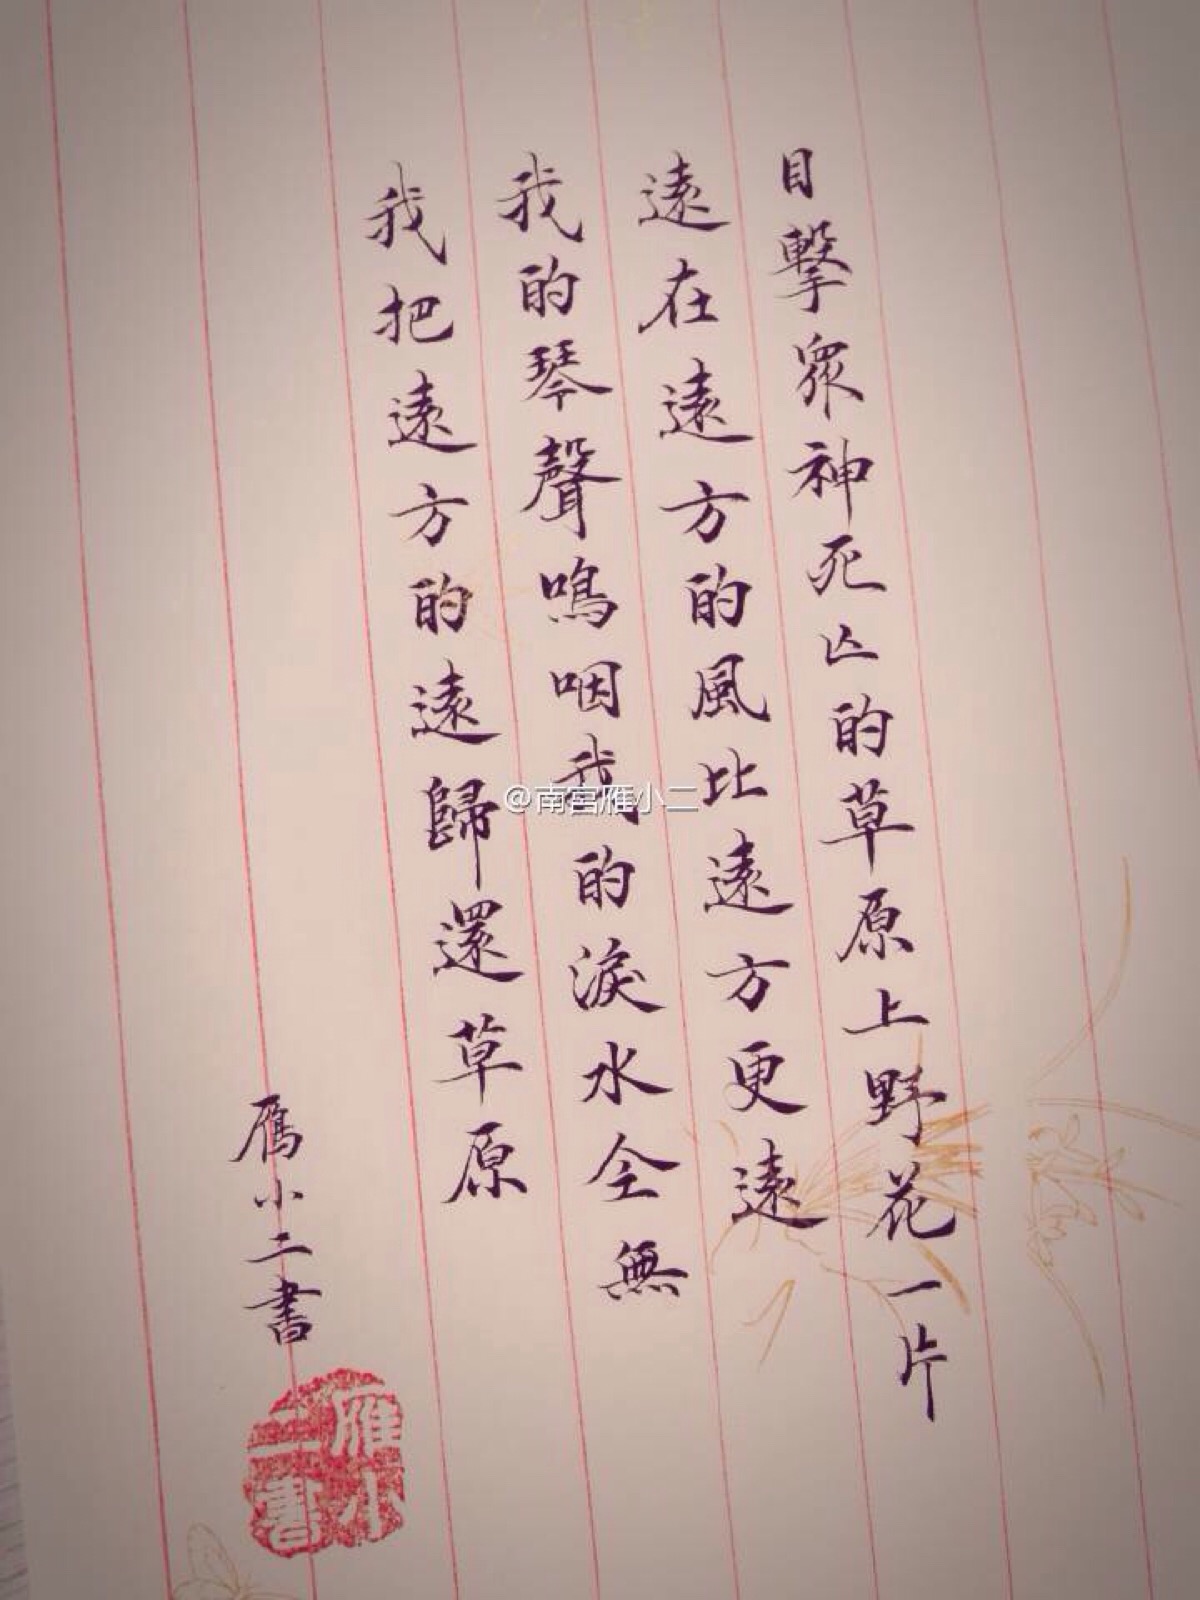 目擊眾神死亡的草原上野花一片
遠在遠方的風比遠方更遠
我的琴聲鳴咽我的淚水全無
我把遠方的遠歸還草原
雁小二書
雁小二書
@南宫雁小二